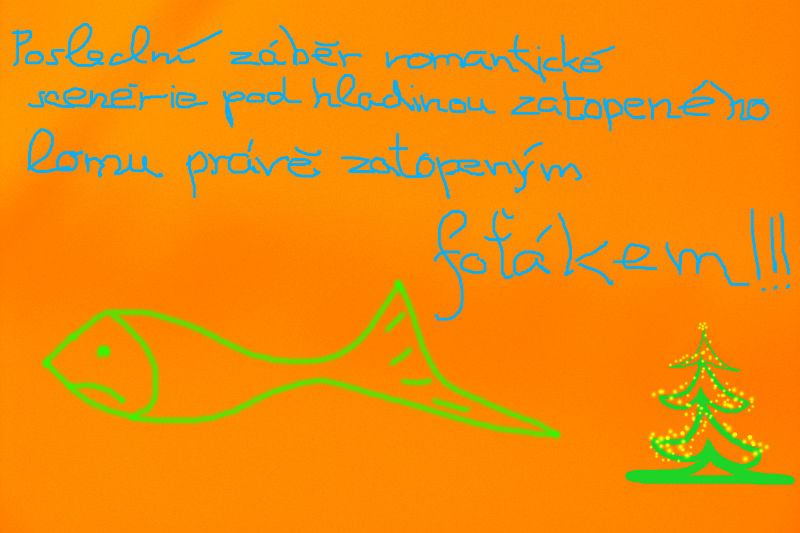 Poslední záběr romantické
scenérie pod hladinou zatopeného
lomu právě zatopeným
foťákem!!!